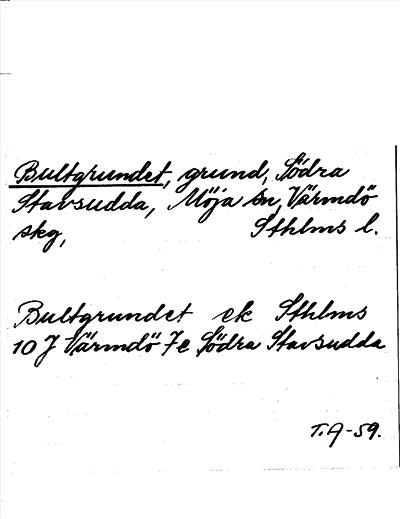 Bultgrundet, grund, Södra
Stavsudda, Möja sn, Värmdö
skg, Sthlms l.
Bultgrundet ek Sthlms
10 J Värmdö 7 e Södra Stavsudda
T.A-59.